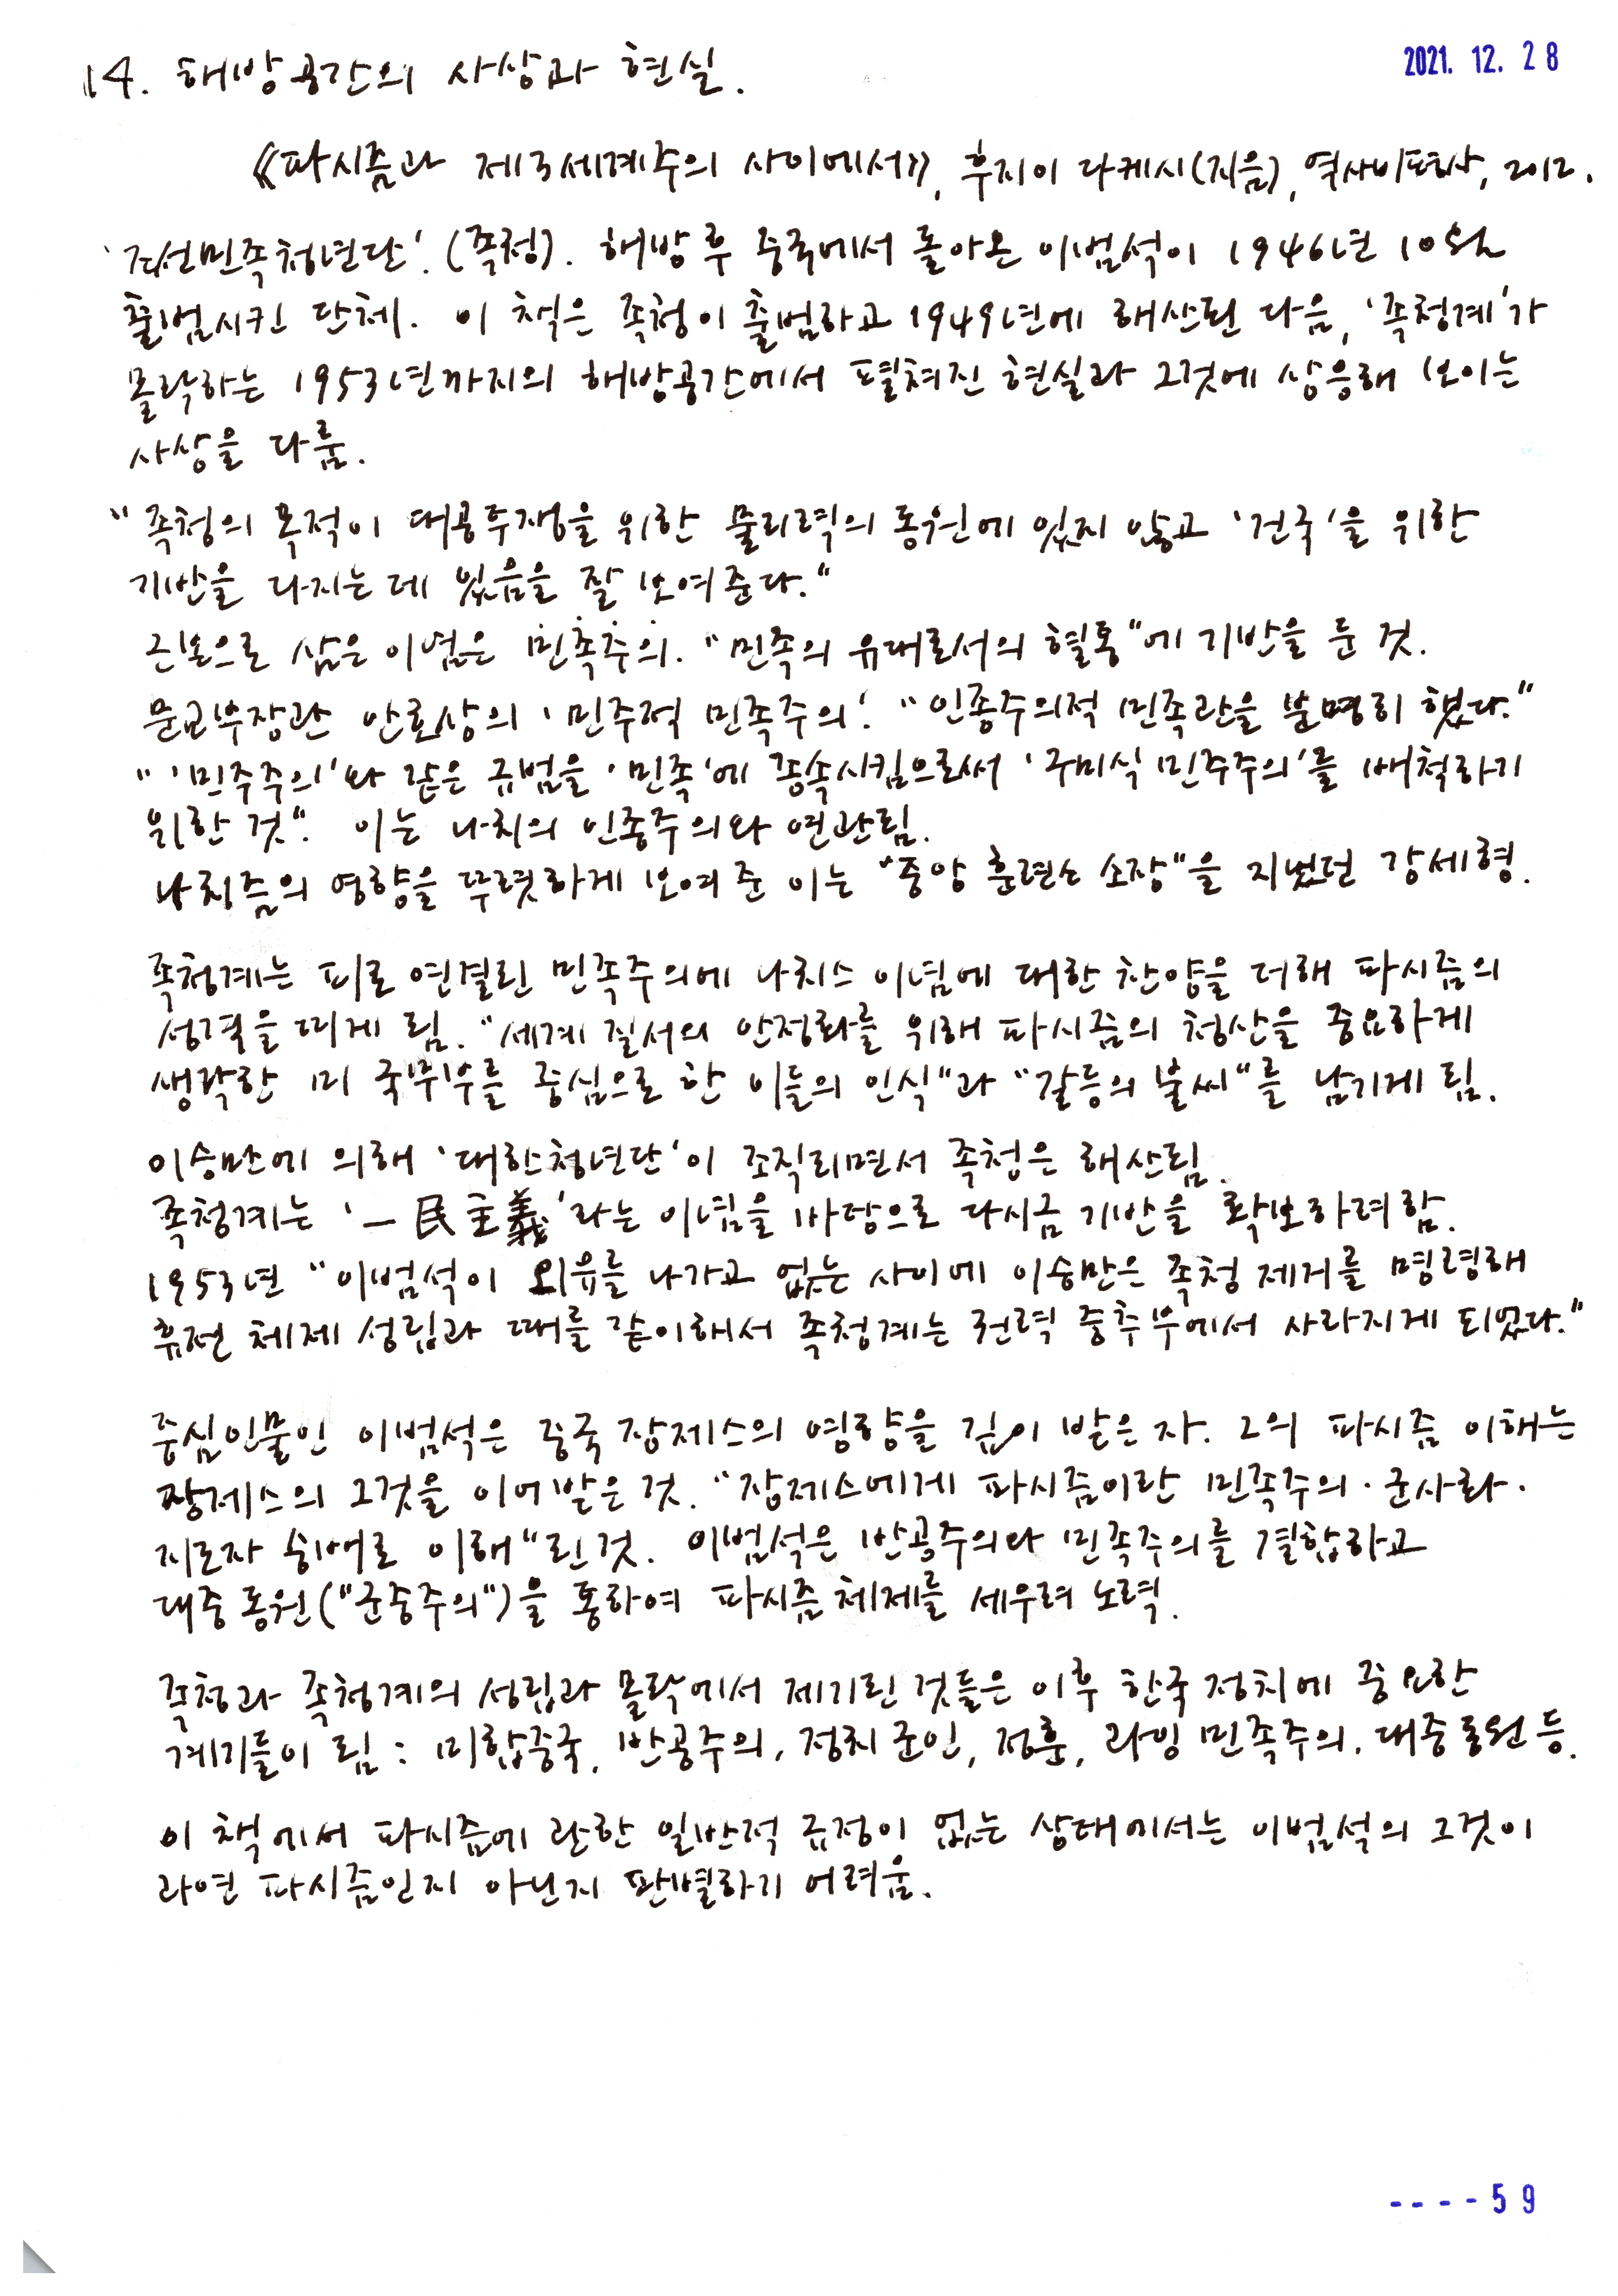 14. 해방공간의 사상과 현실.
2021. 12. 28
《파시즘과 제3세계주의 사이에서》, 후지이 다케시(지음), 역사비평사, 2012.
'조선민족청년단'. (족청). 해방 후 중국에서 돌아온 이범석이 1946년 10월
출범시킨 단체. 이 책은 족청이 출범하고 1949년에 해산된 다음, '족청계'가
몰락하는 1953년까지의 해방공간에서 펼쳐진 현실과 그것에 상응해 보이는
사상을 다룸.
"족청의 목적이 대공투쟁을 위한 물리력의 동원에 있지 않고 '건국'을 위한
기반을 다지는 데 있음을 잘 보여준다."
근본으로 삼은 이념은 민족주의. "민족의 유대로서의 혈통"에 기반을 둔 것.
문교부장관 안호상의 '민주적 민족주의'. "인종주의적 민족관을 분명히 했다."
"'민주주의'와 같은 규범을 '민족'에 종속시킴으로써 '구미식 민주주의'를 배척하기
위한 것". 이는 나치의 인종주의와 연관됨.
나치즘의 영향을 뚜렷하게 보여준 이는 "중앙 훈련소 소장"을 지냈던 강세형.
족청계는 피로 연결된 민족주의에 나치스 이념에 대한 찬양을 더해 파시즘의
성격을 띠게 됨. "세계 질서의 안정화를 위해 파시즘의 청산을 중요하게
생각한 미 국무부를 중심으로 한 이들의 인식"과 "갈등의 불씨"를 남기게 됨.
이승만에 의해 '대한청년단'이 조직되면서 족청은 해산됨.
족청계는 '一民主義'라는 이념을 바탕으로 다시금 기반을 확보하려 함.
1953년 "이범석이 외유를 나가고 없는 사이에 이승만은 족청 제거를 명령해
휴전 체제 성립과 때를 같이해서 족청계는 권력 중추부에서 사라지게 되었다."
중심인물인 이범석은 중국 장제스의 영향을 깊이 받은 자. 그의 파시즘 이해는
장제스의 그것을 이어받은 것. "장제스에게 파시즘이란 민족주의·군사화·
지도자 숭배로 이해"된 것. 이범석은 반공주의와 민족주의를 결합하고
대중 동원("군중주의")을 통하여 파시즘 체제를 세우려 노력.
족청과 족청계의 성립과 몰락에서 제기된 것들은 이후 한국 정치에 중요한
계기들이 됨 : 미합중국, 반공주의, 정치 군인, 정훈, 과잉 민족주의, 대중동원 등.
이 책에서 파시즘에 관한 일반적 규정이 없는 상태에서는 이범석의 그것이
과연 파시즘인지 아닌지 판별하기 어려움.
----59